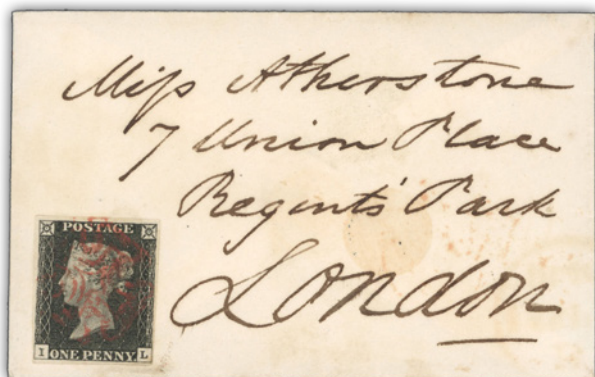 Miss Atherstone
7 Union Place
Regents' Park
London
POSTAGE
I ONE PENNY L